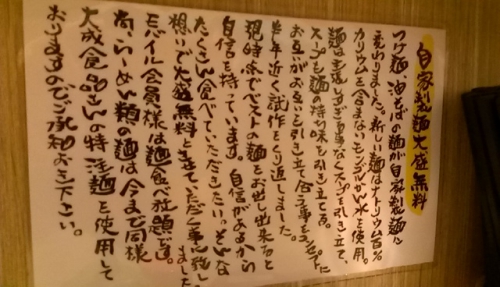 自家製麺大盛無料
つけ麺・油そばの麺が自家製麺に
変わりました。新しい麺はナトリウム百%
カリウムを含まないモンゴルかん水を使用。
麺は主張しすぎる事なくスープを引き立て、
スープも麺の持ち味を引き立てる。
お互いがお互いを引き立て合う事をコンセプトに
半年近く試作をくり返しました。
現時点でベストの麺をお出し出来ると
自信を持っています。自信があるから
たくさん食べていただきたい。そんな
想いで大盛無料とさせていただく事に致しました
モバイル会員様は麺食べ放題です。
尚、らーめん類の麺は今まで同様
大成食品さんの特注麺を使用して
おりますのでご承知おき下さい。